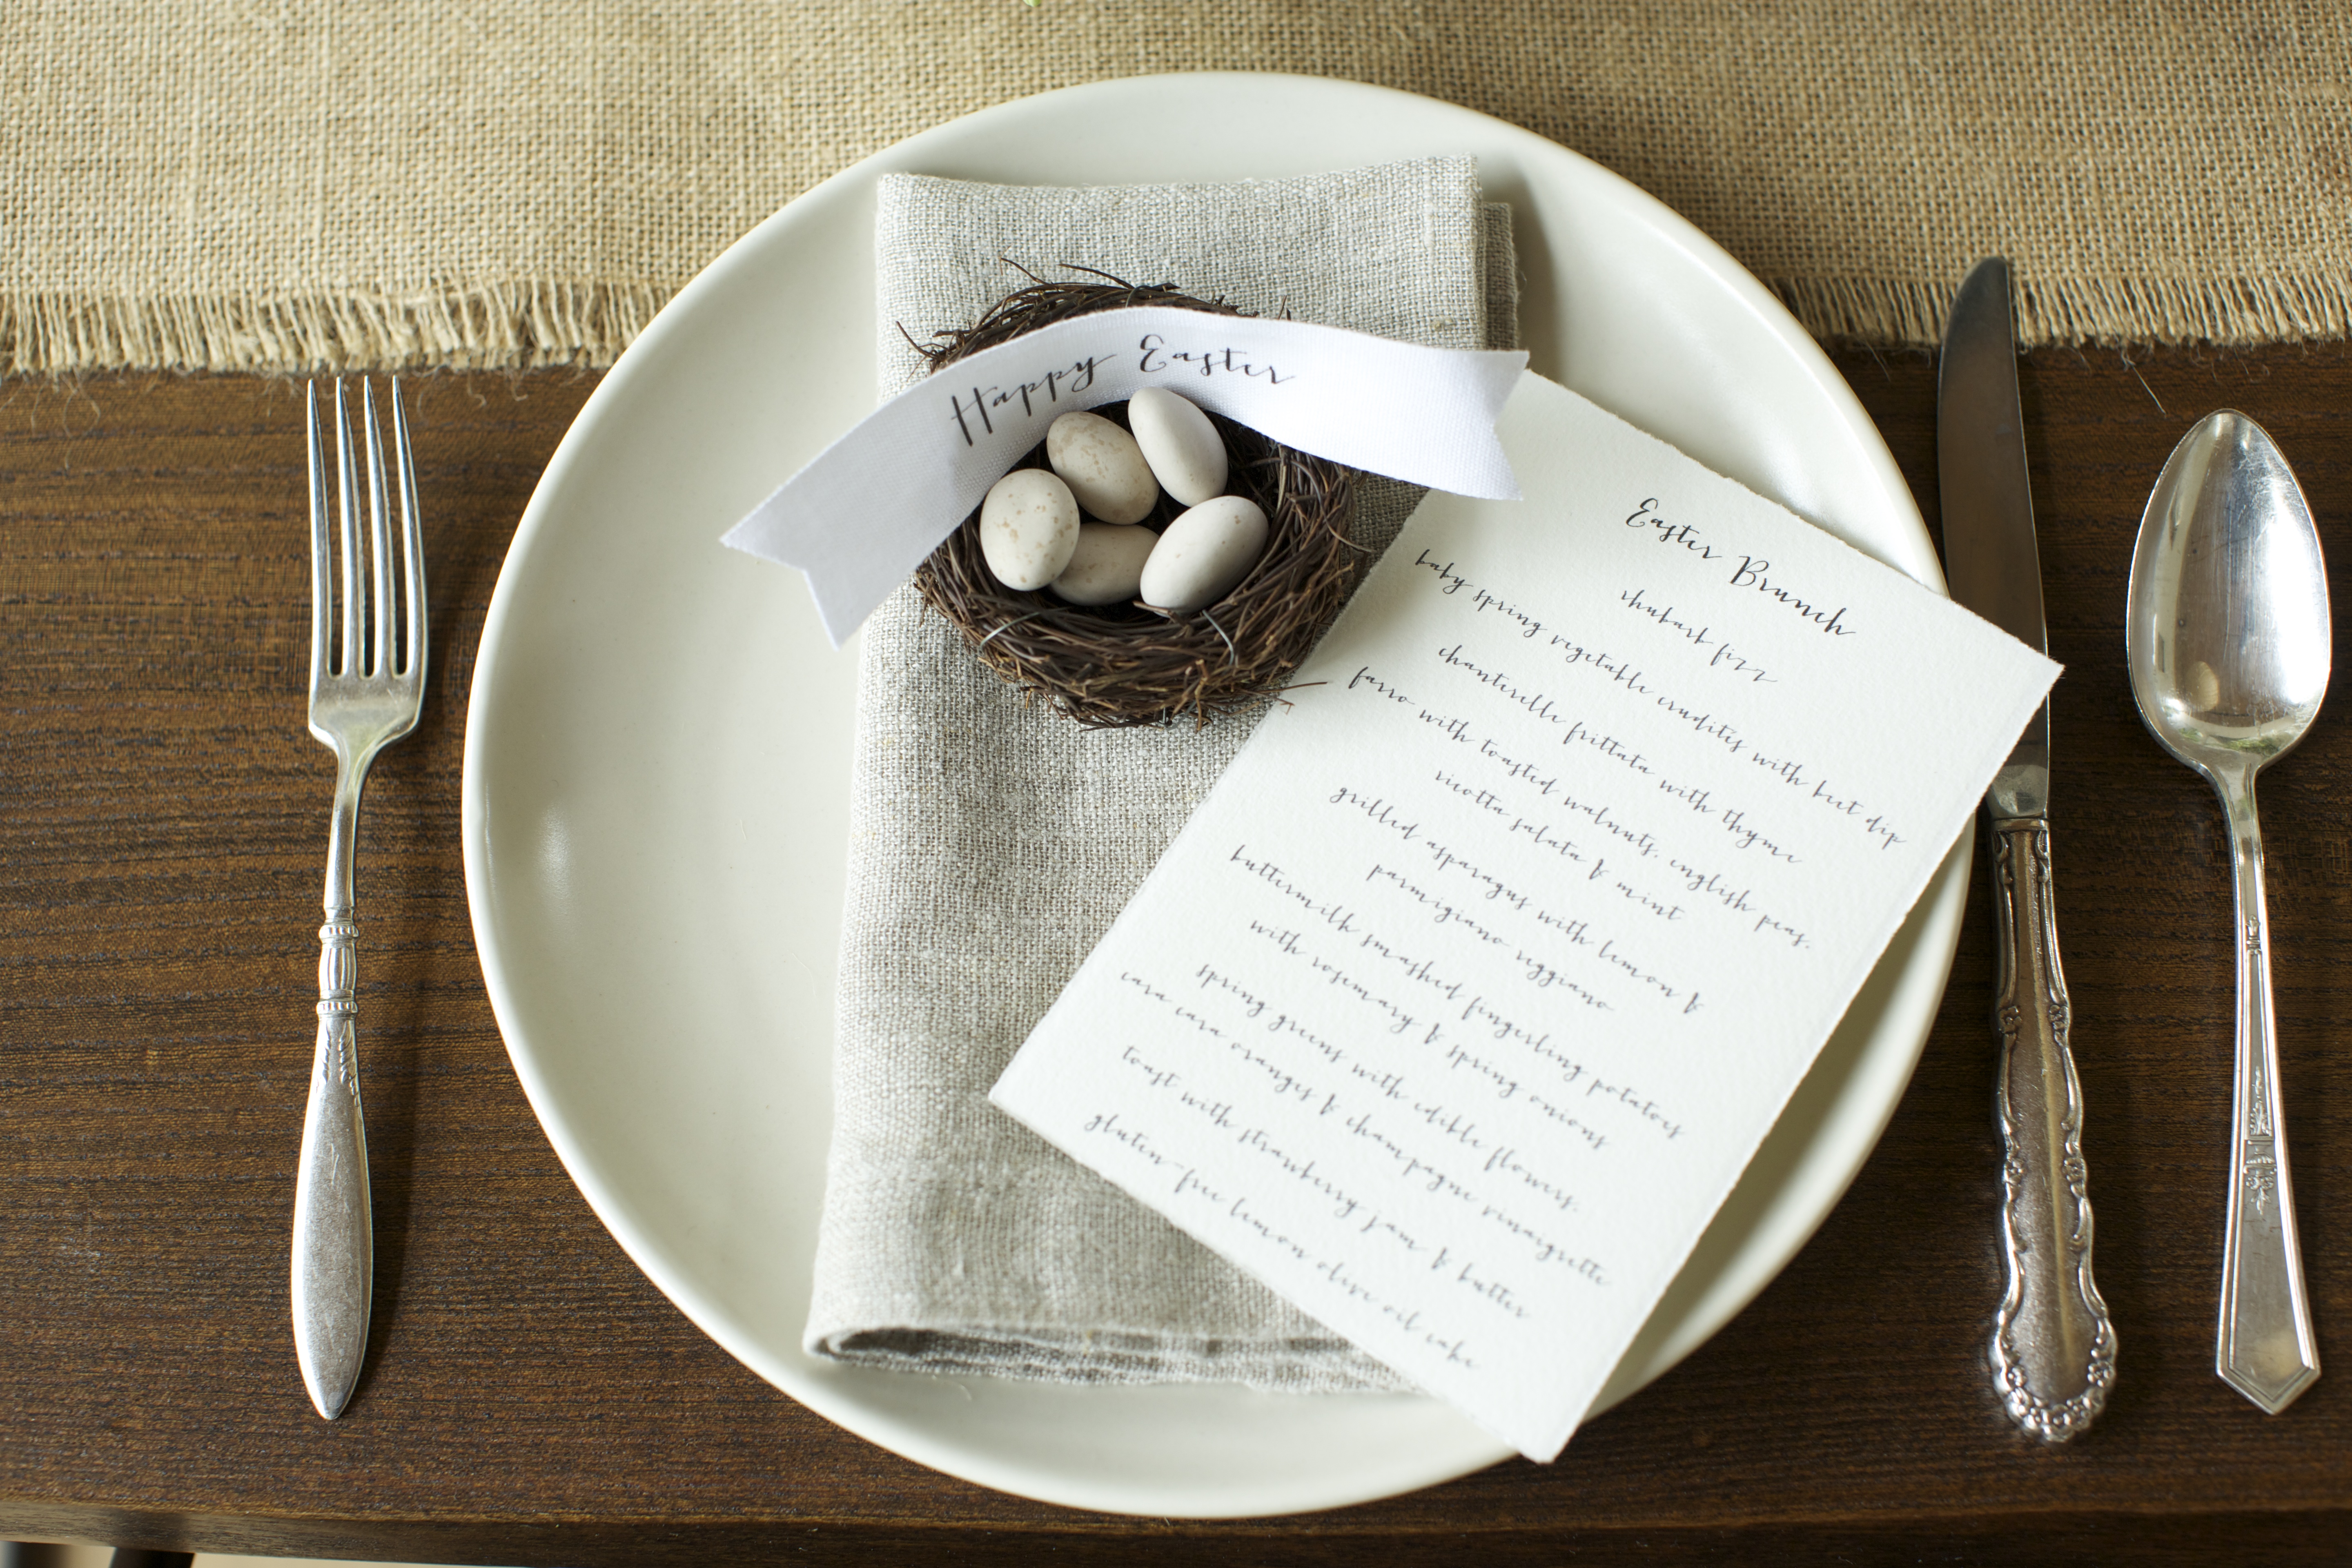 Happy Easter
Easter Brunch
rhubarb fizz
baby spring vegetable crudites with beet dip
chanterelle frittata with thyme
farro with toasted walnuts, english peas,
ricotta salata & mint
grilled asparagus with lemon &
parmigiano reggiano
buttermilk smashed fingerling potatoes
with rosemary & spring onions
spring greens with edible flowers,
cara cara oranges & champagne vinaigrette
toast with strawberry jam & butter
gluten-free lemon olive oil cake